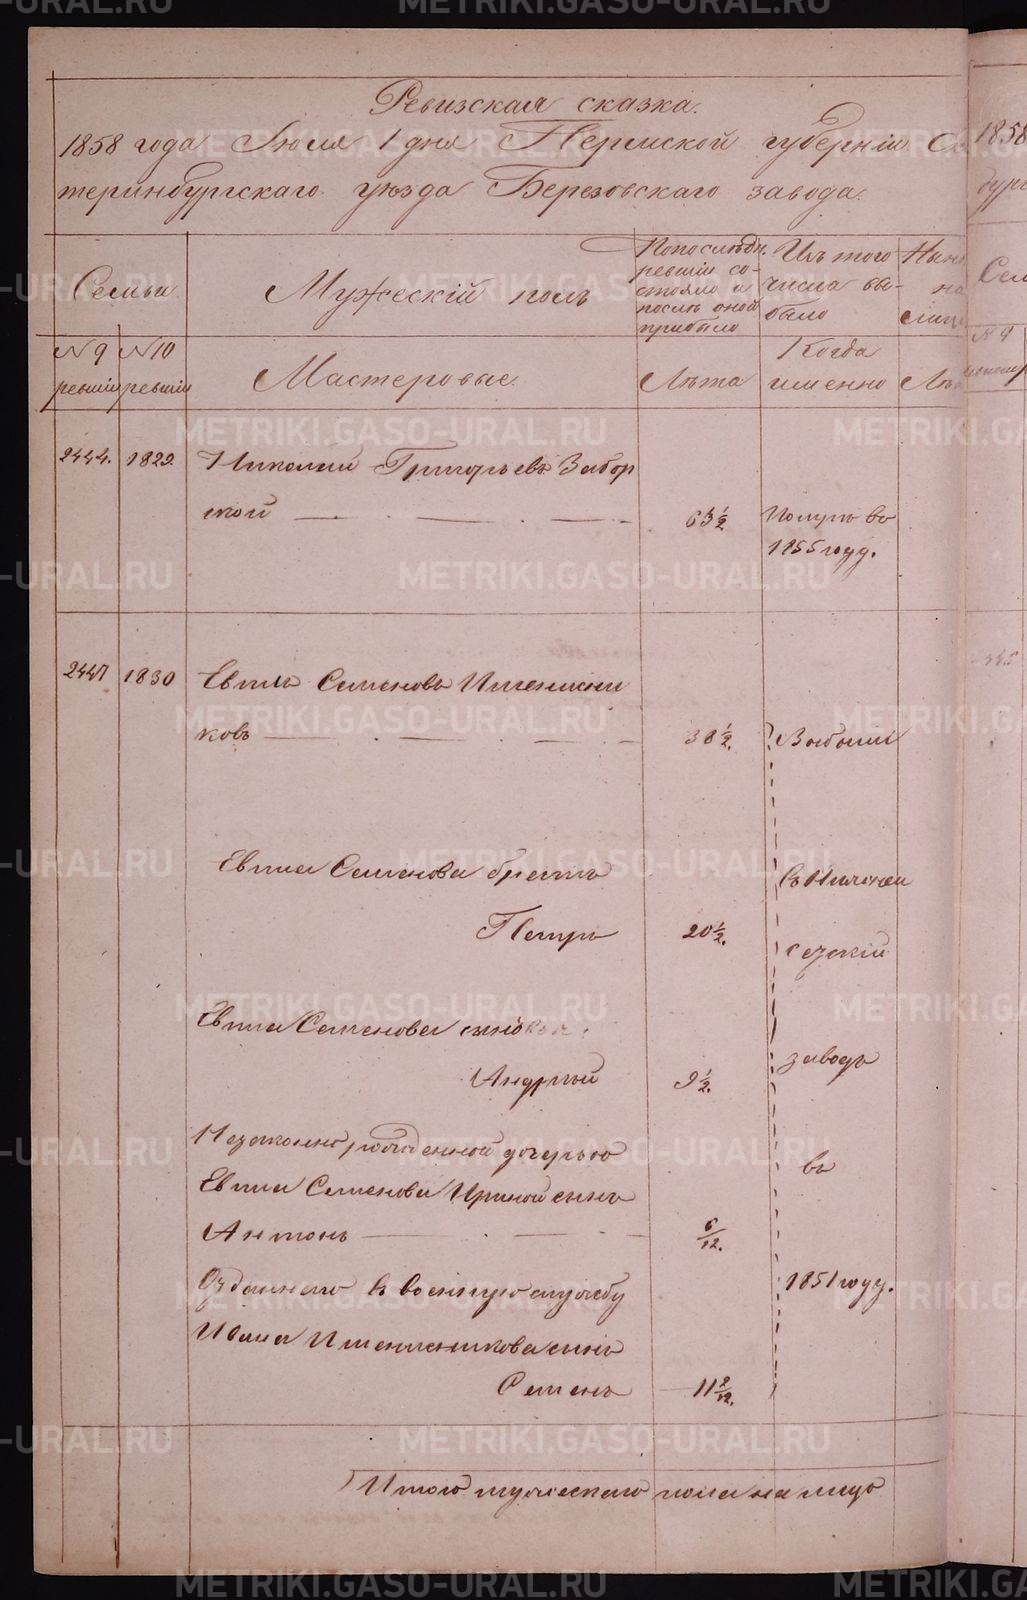 Ревизская сказка.
1858 года Июля 1 дня Пермской губерніи Ека
теринбургскаго уѣзда Березовскаго завода.
Семьи
Мужескій полъ
По послѣдн.
ревизіи со-
стояло и
послѣ оной
прибыло
Изъ того
числа вы-
было
Нынѣ
на
лицо
№ 9
ревизіи
№ 10
ревизіи
Мастеровые.
Лѣта
Когда
именно
2444. 1829. Николай Григорьевъ Забор
ской 63½ Померъ въ
1855 году.
1830 Евпла Семеновъ
ковъ 38½. Выбыли
Евпла Семенова братъ въ
Петръ 20½.
Евпла Семенова сынъ
Андрей 9½. заводъ
Незаконно рожденной дочерью въ
Евпла Семенова Ириной сынъ
Антонъ 6/12.
Отданнаго в военную службу 1851 году.
Ивана сынъ
Семенъ 11 2/12.
Итого мужескаго пола на лицо
1858
METRIKI.GASO-URAL.RU